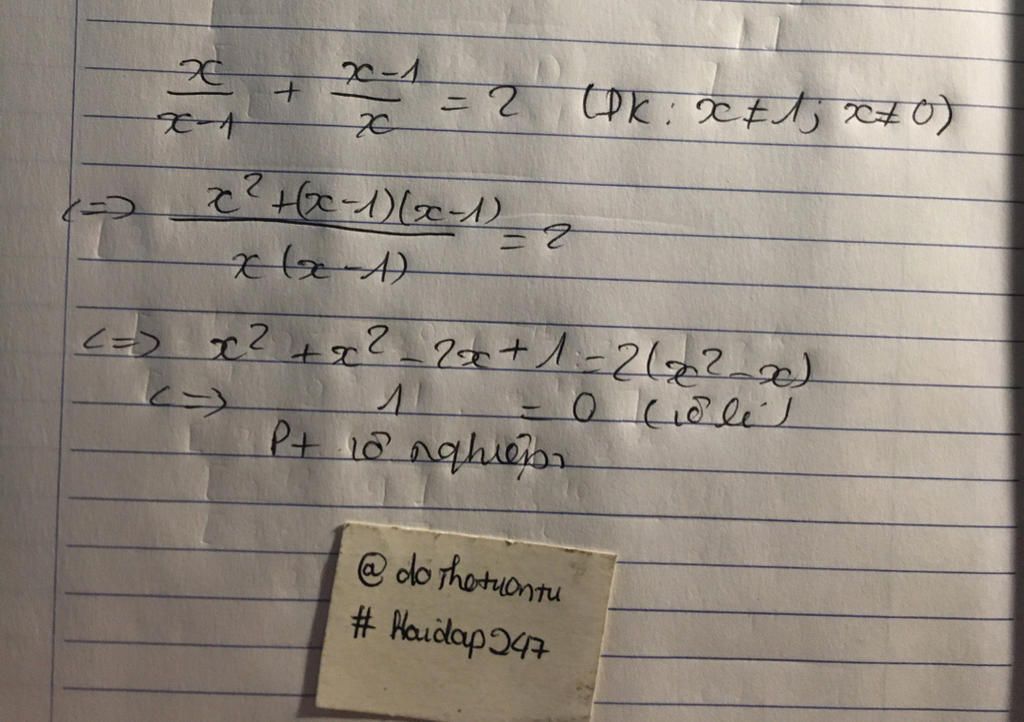 x/(x-1) + (x-1)/x = 2 (ĐK: x ≠ 1; x ≠ 0)
<=> (x² + (x-1)(x-1))/(x(x-1)) = 2
<=> x² + x² - 2x + 1 = 2(x² - x)
<=> 1 = 0 (vô lí)
Pt vô nghiệm
@dothetuantu
# Hoidap247